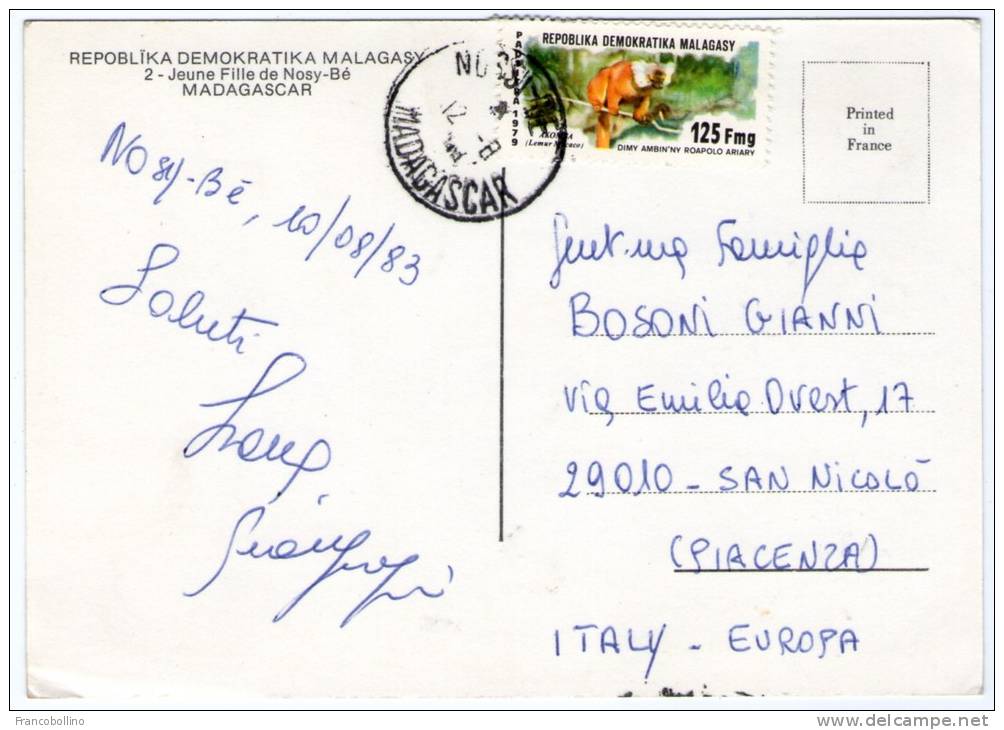 REPOBLÏKA DEMOKRATIKA MALAGASY
2 - Jeune Fille de Nosy-Bé
MADAGASCAR
NOSY-BE
12 -8
MADAGASCAR
1979
REPOBLIKA DEMOKRATIKA MALAGASY
(Lemur Macaco)
125 Fmg
DIMY AMBIN'NY ROAPOLO ARIARY
Printed
in
France
Nosy-Bé, 10/08/83
Saluti
Gent.ma Famiglia
BOSONI GIANNI
Via Emilia Ovest, 17
29010 - SAN NICOLÒ
(PIACENZA)
ITALY - EUROPA
Francobollino
www.delcampe.net